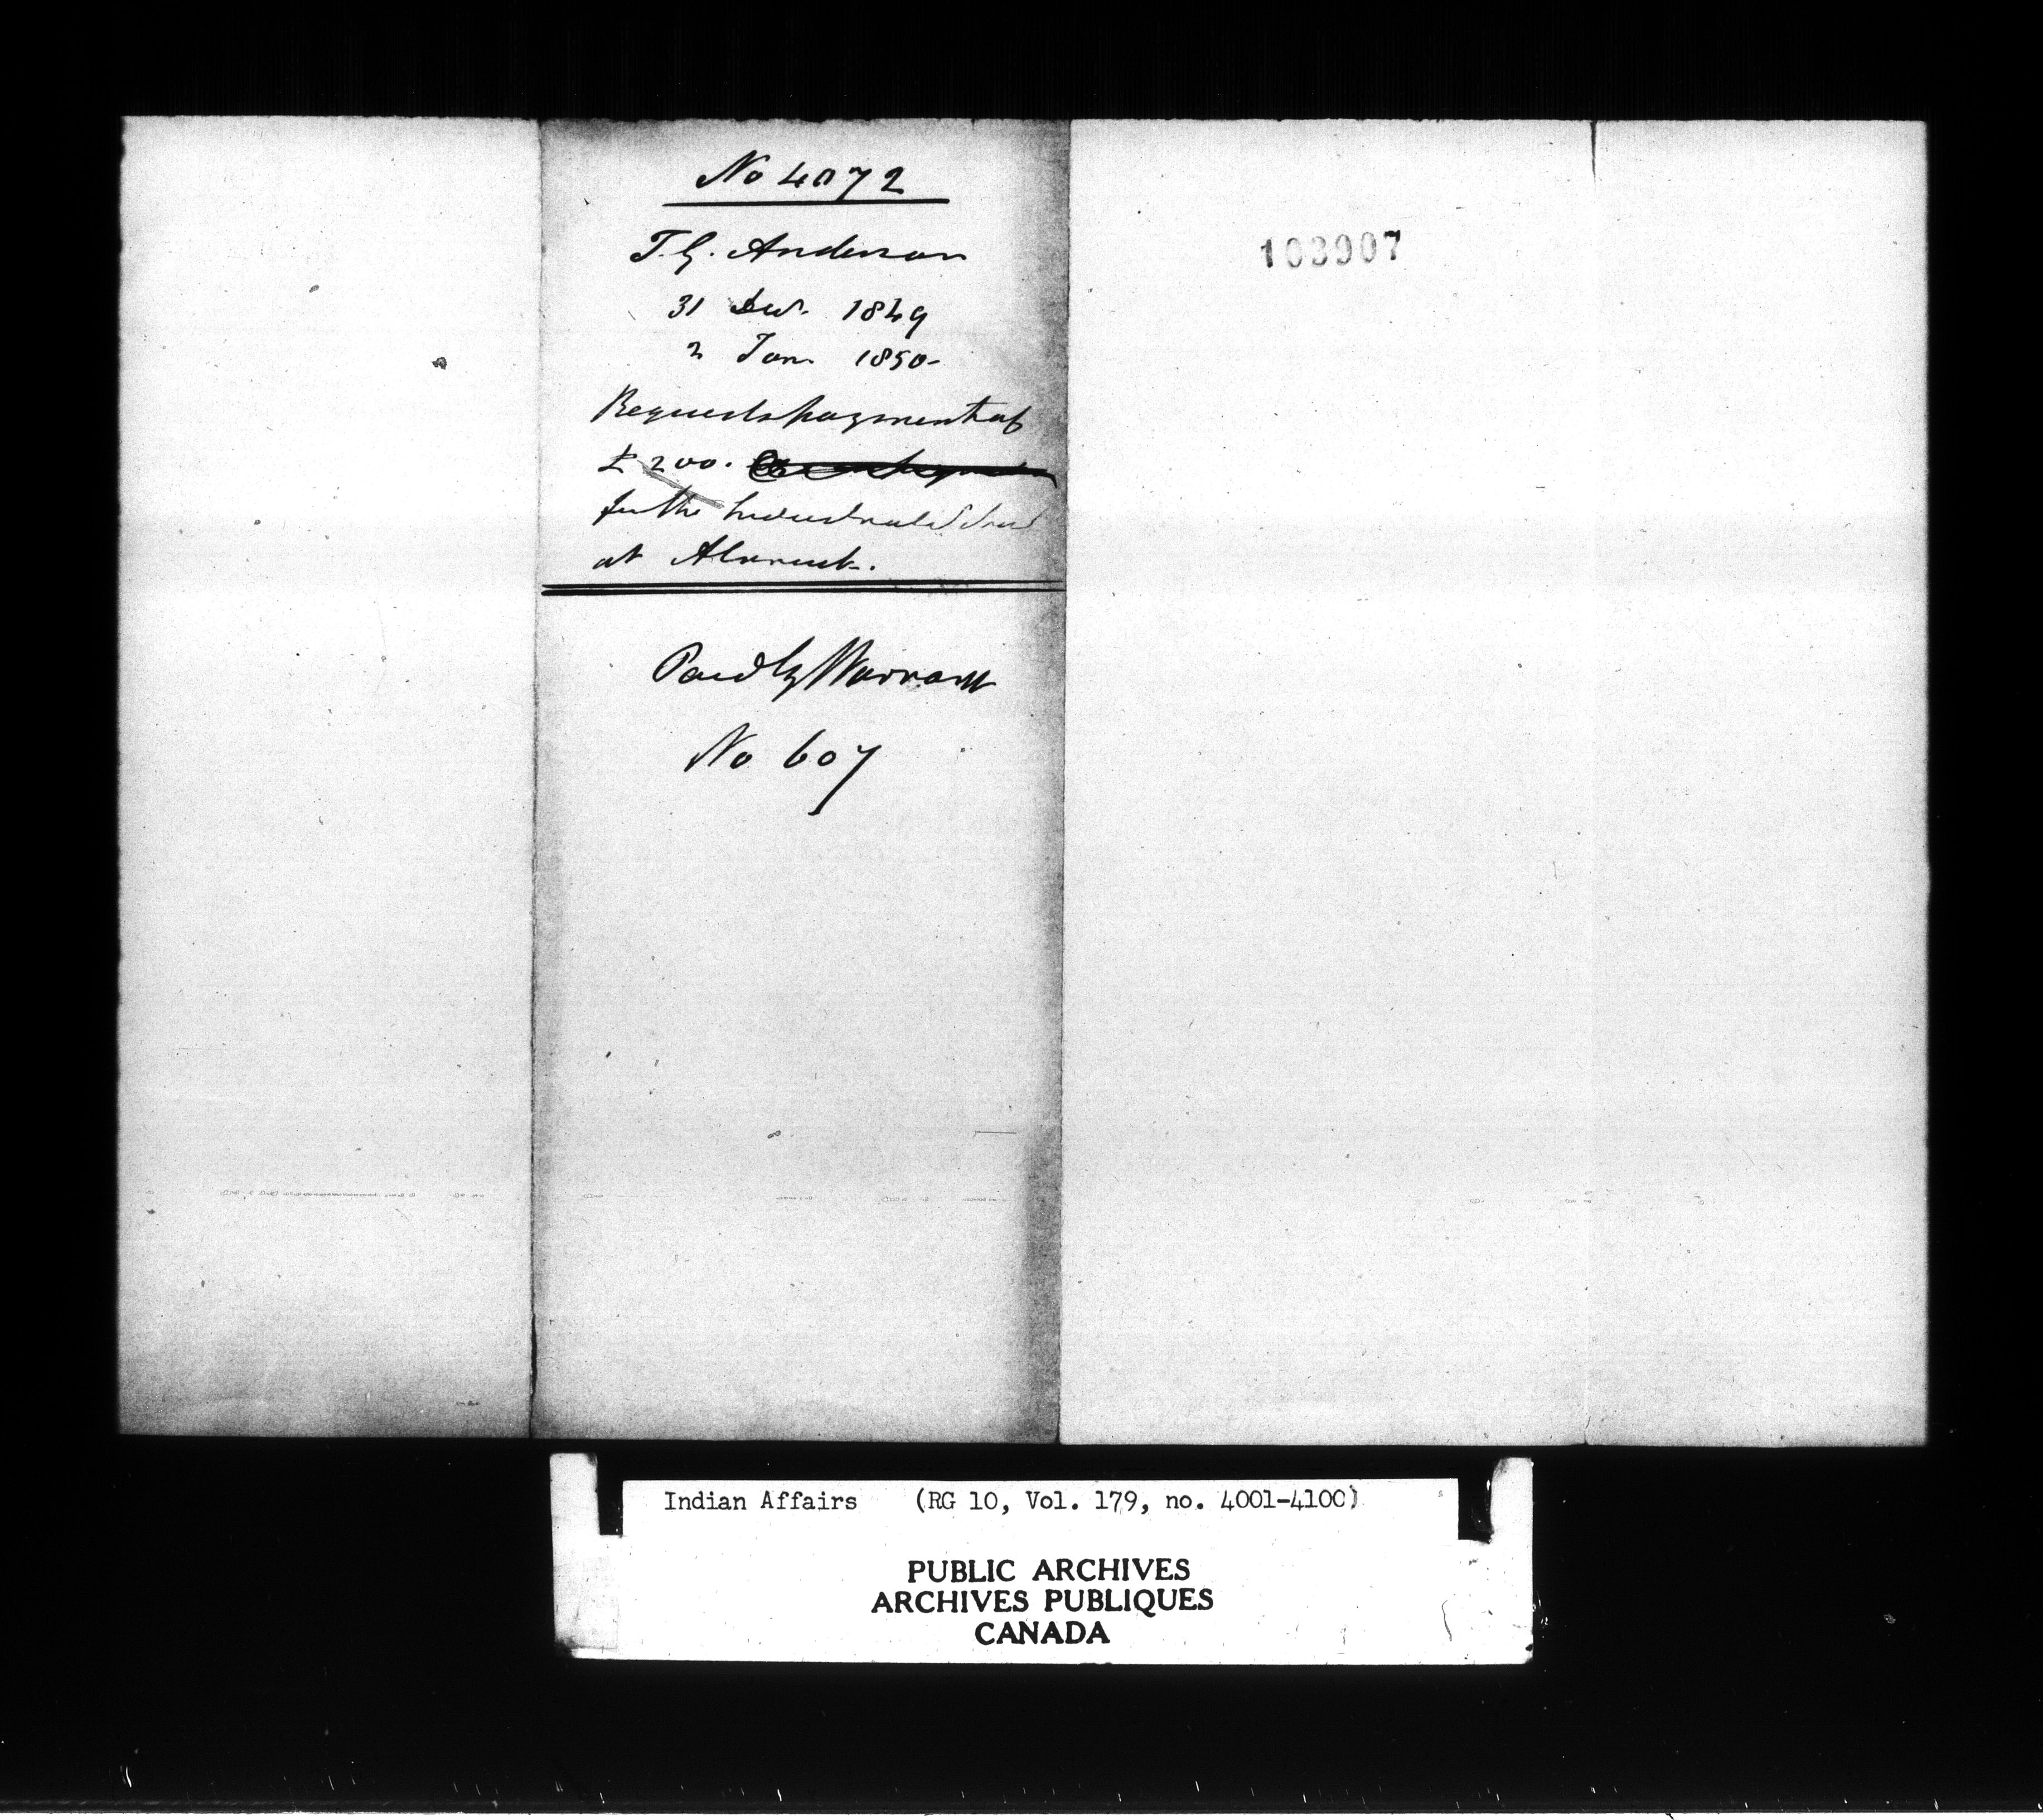 No 4072
T. G. Anderson
31 Dec. 1849
2 Jan. 1850-
Requests payment of
£ 200.
for the Industrial School
at Alnwick.
Paid by Warrant
No 607
103907
Indian Affairs (RG 10, Vol. 179, no. 4001-4100)
PUBLIC ARCHIVES
ARCHIVES PUBLIQUES
CANADA